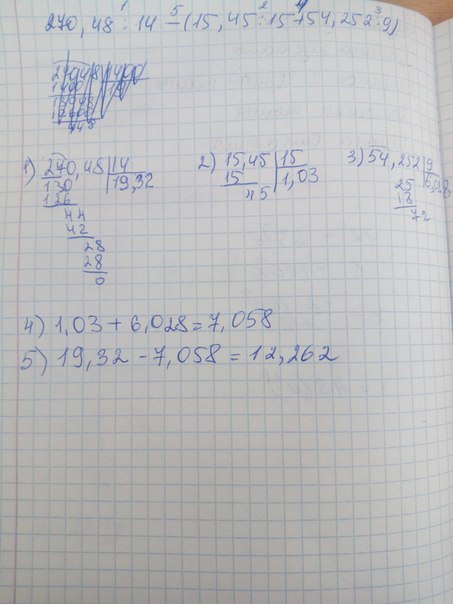 270,48 : 14 - (15,45 : 15 + 54,252 : 9)
1 5 2 4 3
1) 270,48 | 14 2) 15,45 | 15 3) 54,252 | 9
130 19,32 15 1,03 25 6,028
126 45 18
44 72
42
28
28
0
4) 1,03 + 6,028 = 7,058
5) 19,32 - 7,058 = 12,262